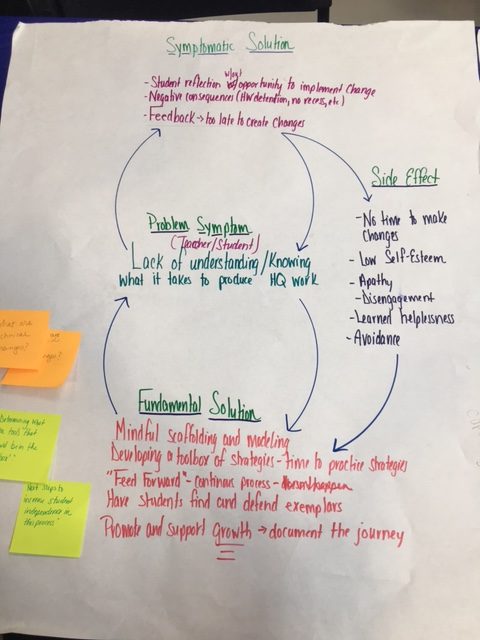 Symptomatic Solution
- Student reflection w/out opportunity to implement change
- Negative consequences (HW detention, no recess, etc)
- Feedback → too late to create changes
Side Effect
- No time to make
changes
- Low Self-Esteem
- Apathy
- Disengagement
- Learned helplessness
- Avoidance
Problem Symptom
(Teacher/Student)
Lack of understanding/Knowing
what it takes to produce HQ work
Fundamental Solution
Mindful scaffolding and modeling
Developing a toolbox of strategies - time to practice strategies
"Feed Forward" - continous process -
Have students find and defend exemplars
Promote and support growth → document the journey
what are
technical
changes?
Determining what
tools that
Next Steps to
increase student
independence in
this process"